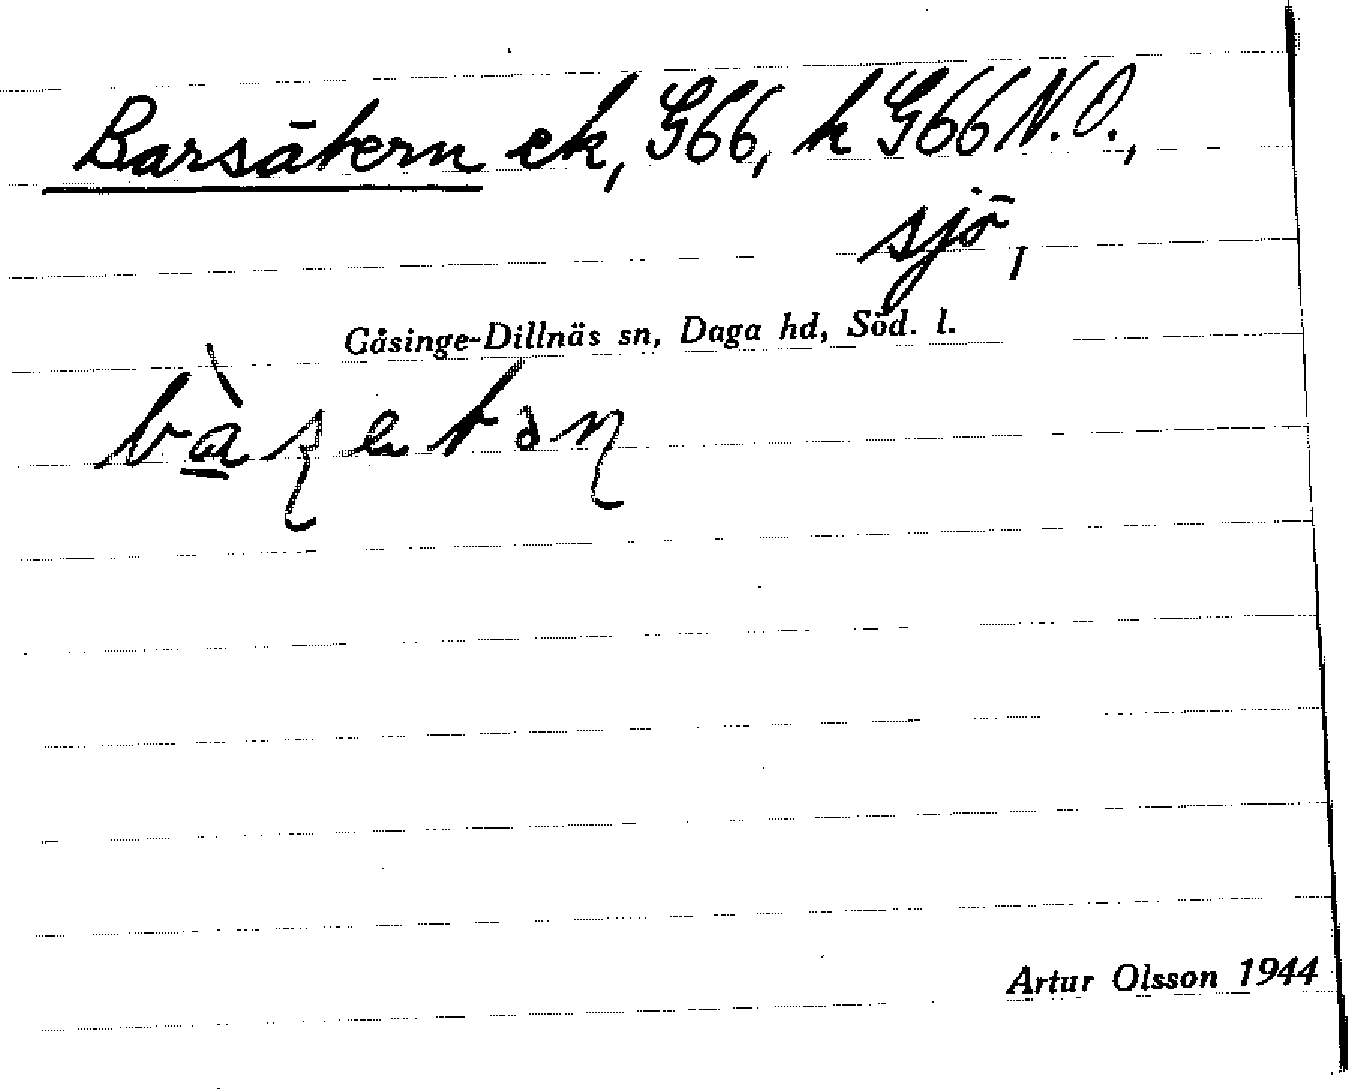 Barsätern ek, G66, k G66 N.O.,
sjö,
Gåsinge-Dillnäs sn, Daga hd, Söd. l.
Artur Olsson 1944